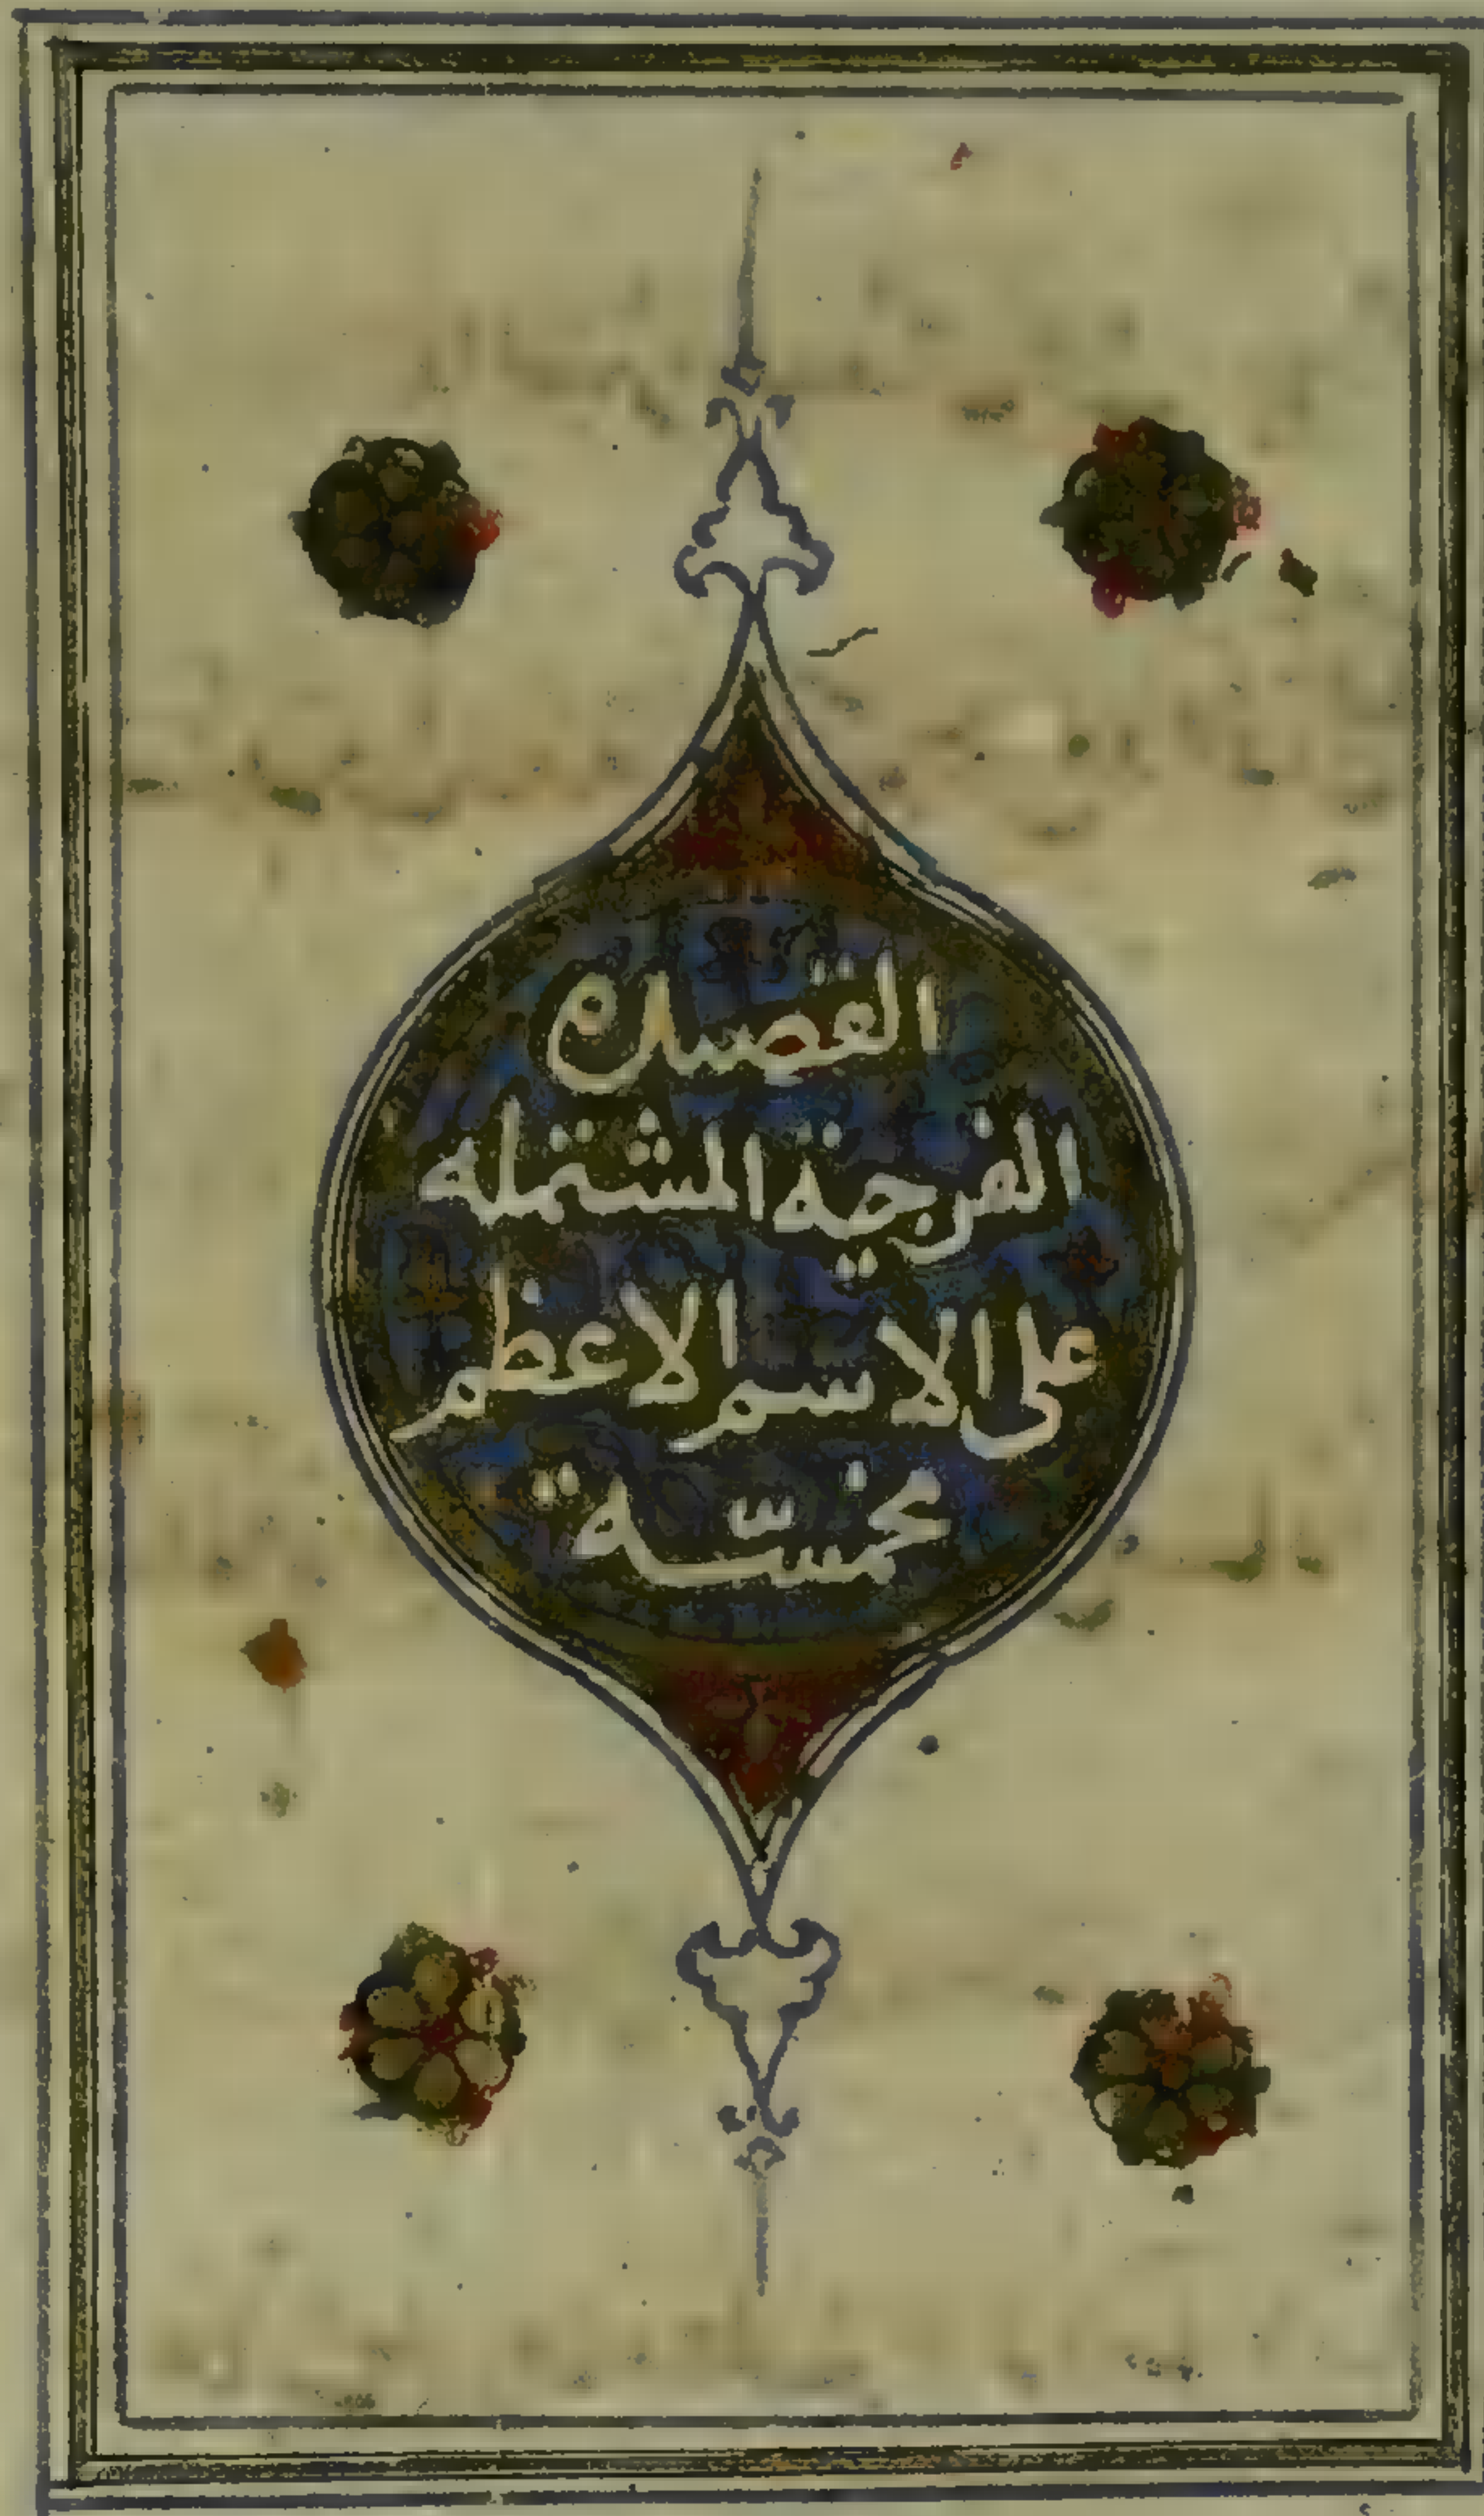 القصيدة
الفرجية المشتمله
على الاسم الاعظم
مخمسّة